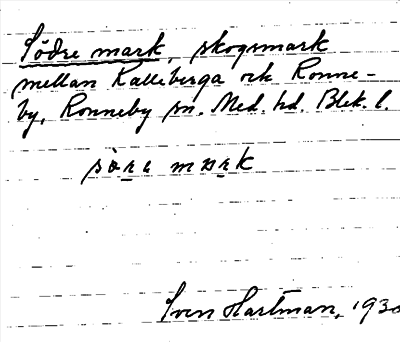 Södre mark, skogsmark
mellan Kalleberga och Ronne-
by, Ronneby sn. Med. hd. Blek. l.
mark
Sven Hartman, 1930